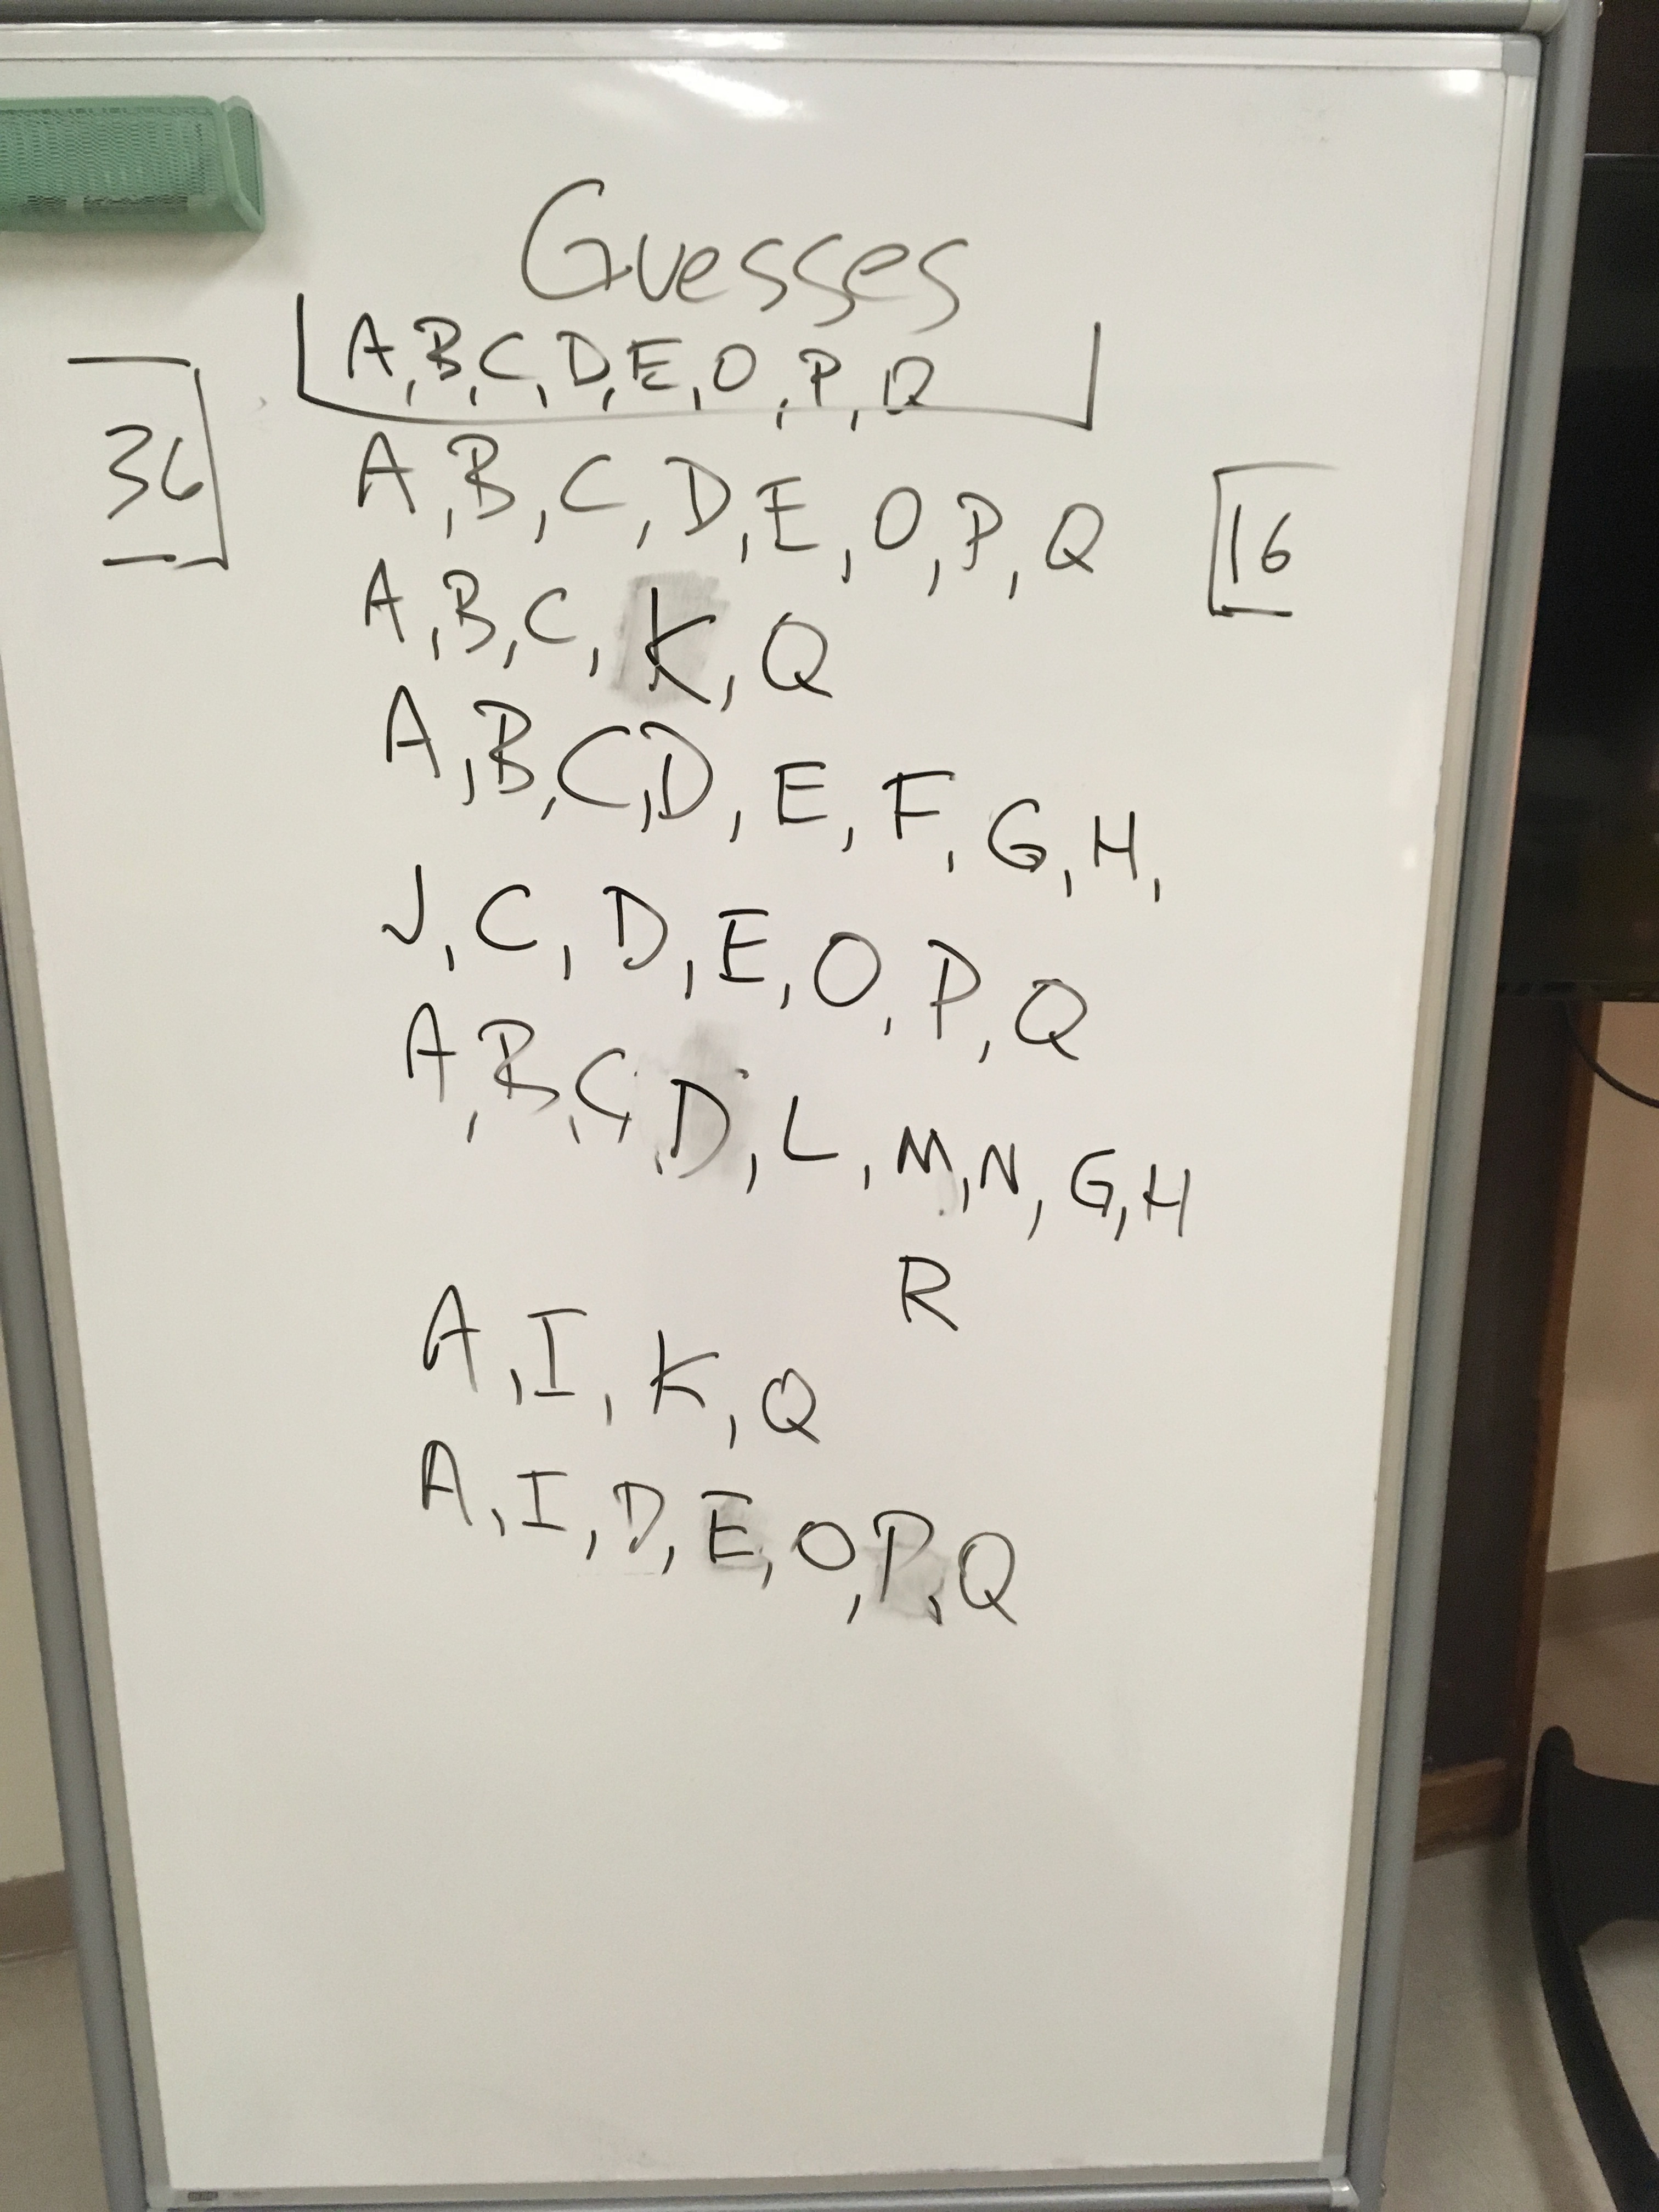 Guesses
A, B, C, D, E, O, P, Q
36
A, B, C, D, E, O, P, Q
16
A, B, C, K, Q
A, B, C, D, E, F, G, H,
J, C, D, E, O, P, Q
A, B, C, D, L, M, N, G, H
R
A, I, K, Q
A, I, D, E, O, P, Q